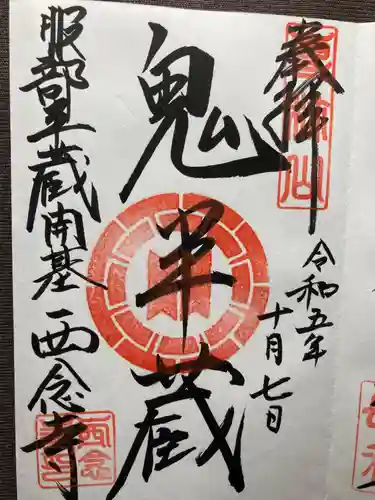 奉拝
令和五年
十月七日
鬼半蔵
服部半蔵開基西念寺